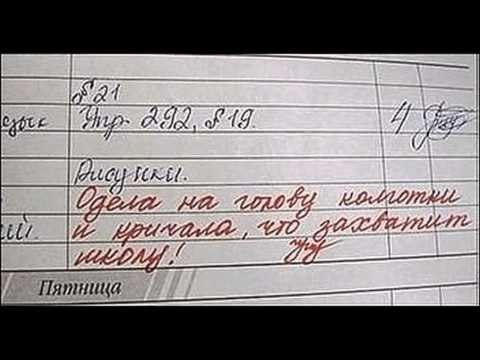 §21
язык Упр. 292, §19. 4
Рисунки.
Одела на голову колготки
ий. и кричала, что захватит
школу!
Пятница